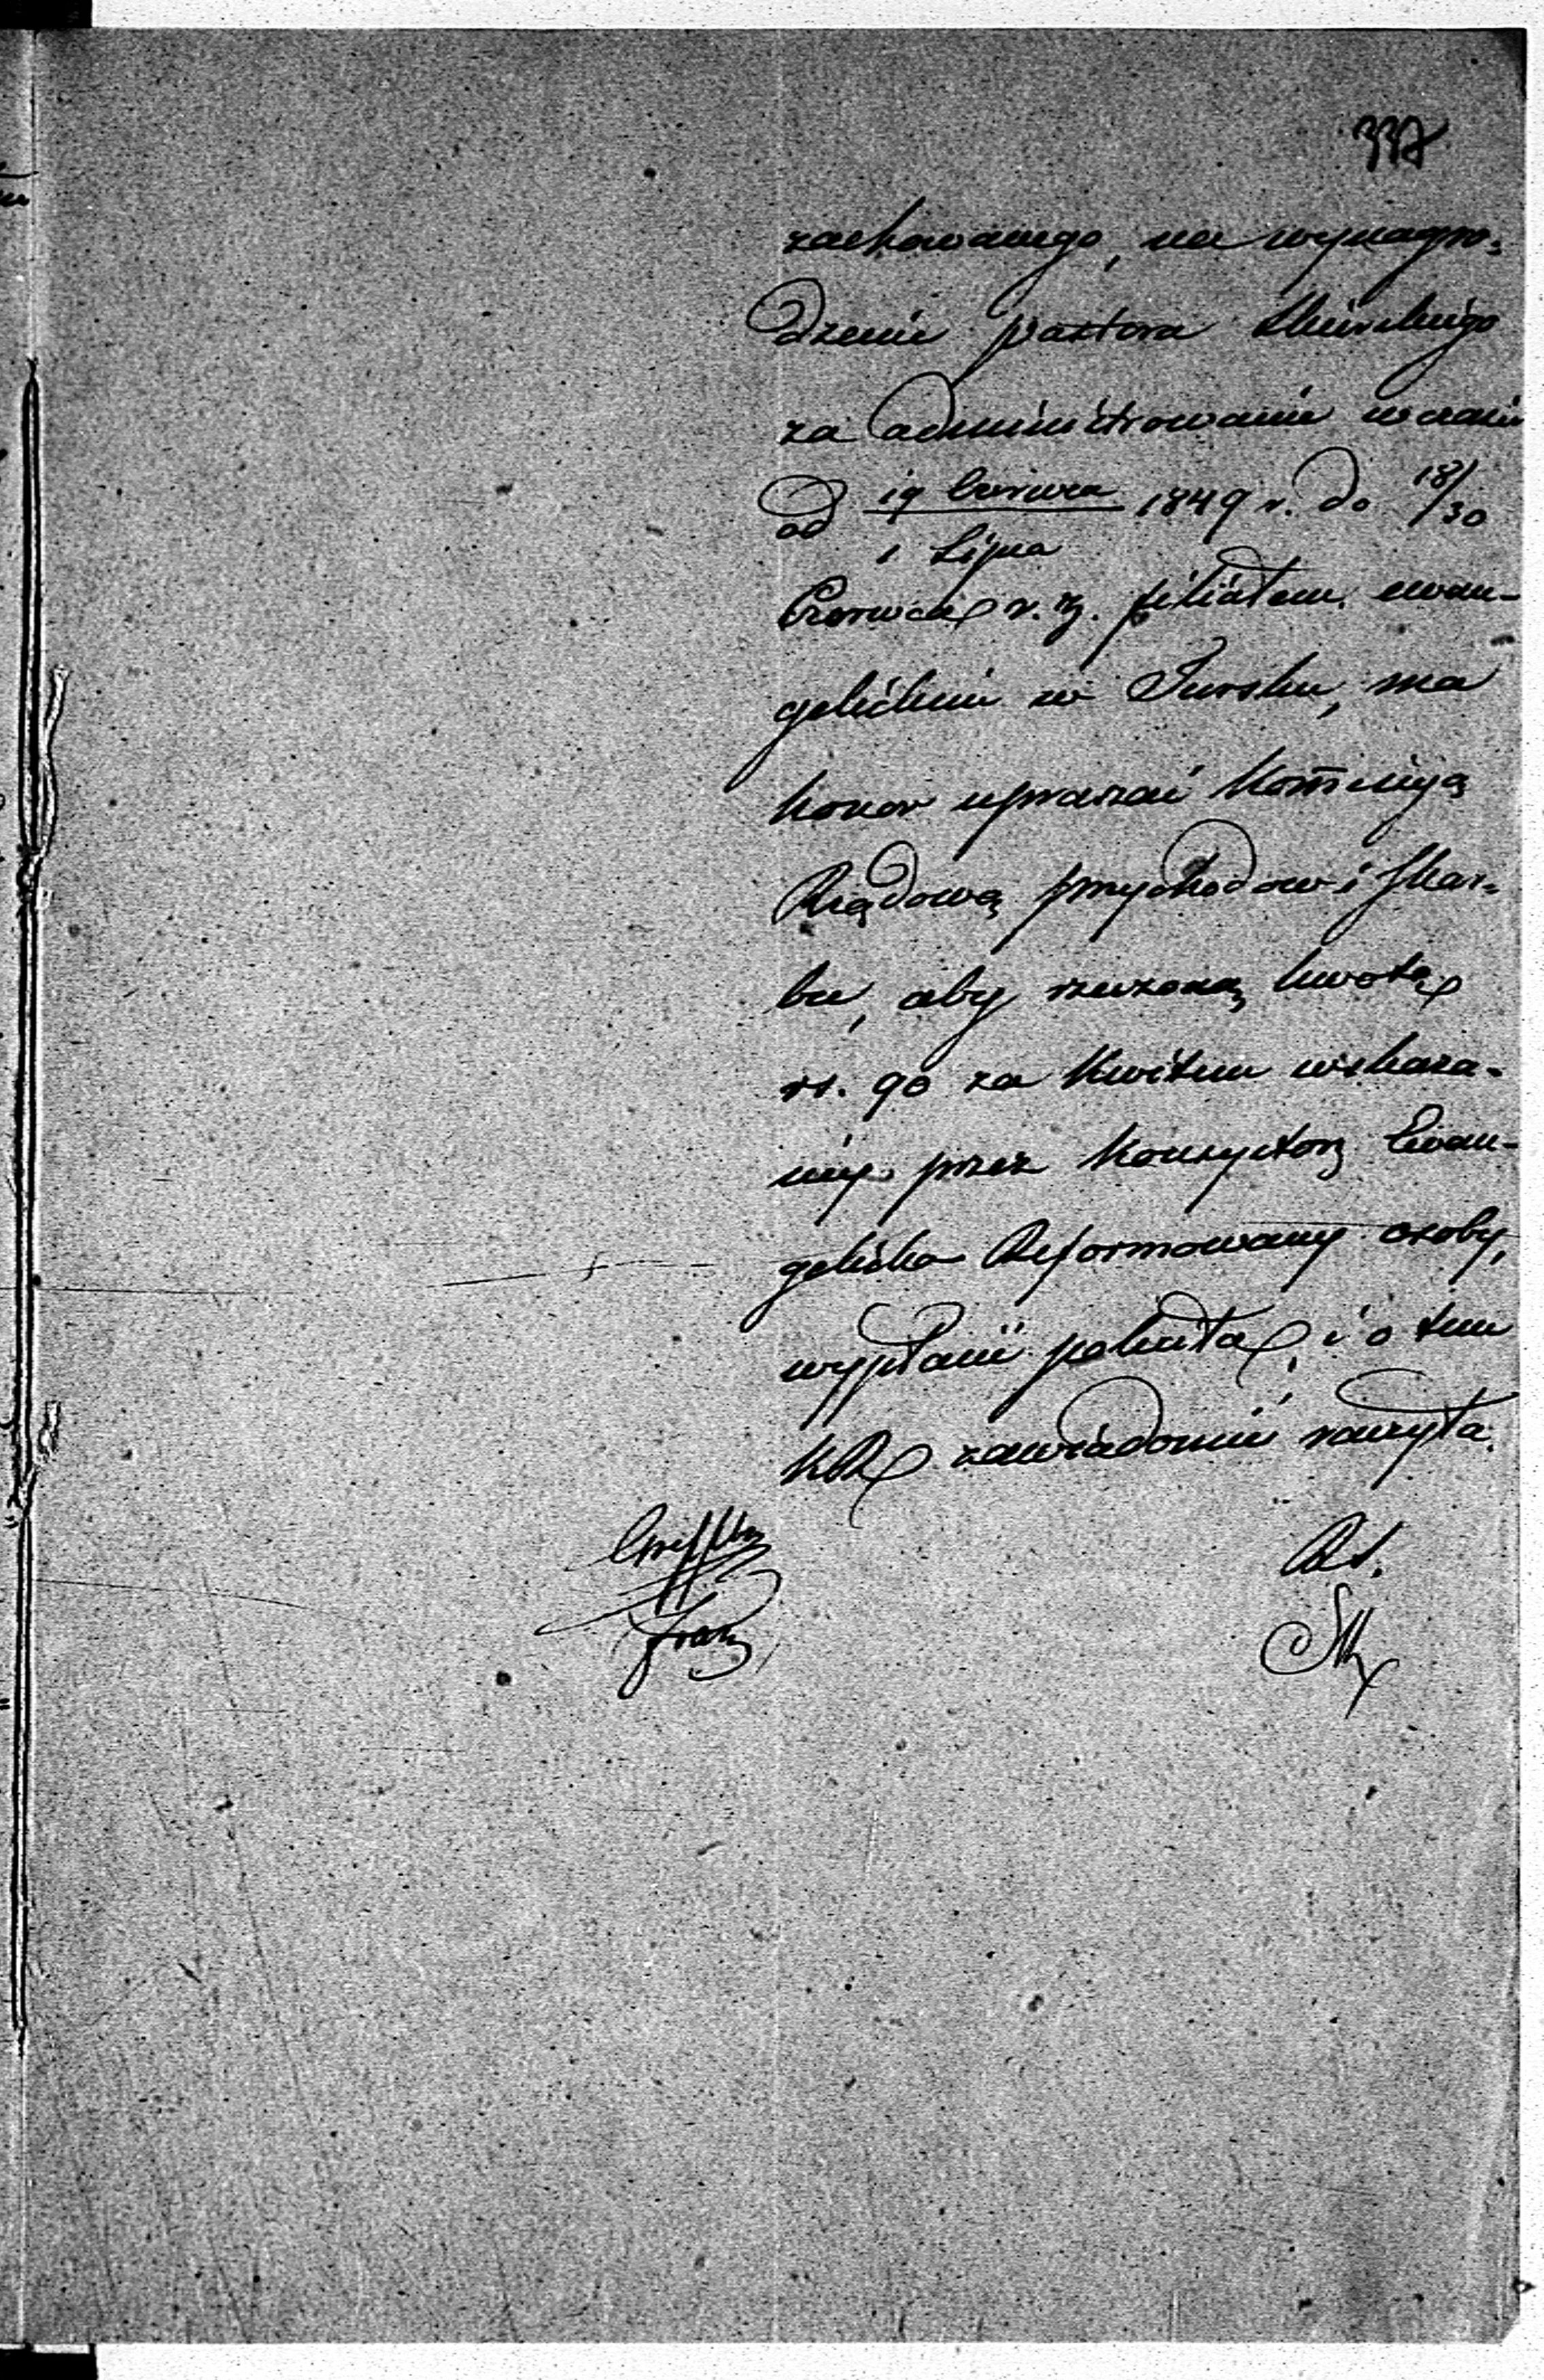 337
zachowanego, na wynagro-
dzenie pastora
za administrowanie w czasie
od 19 Czerwca / 1 Lipca 1849 r. do 18/30
Czerwca r. z. filiałem ewan-
gelickim w Tursku, ma
honor upraszać Kommissyą
Rządową przychodow i Skar-
bu, aby rzeczoną kwotę
rs. 90 za kwitem wskaza-
néj przez Konsystorz Ewan-
gelicko Reformowany osoby,
wypłacić poleciła, i o tem
KR zawiadomić raczyła.